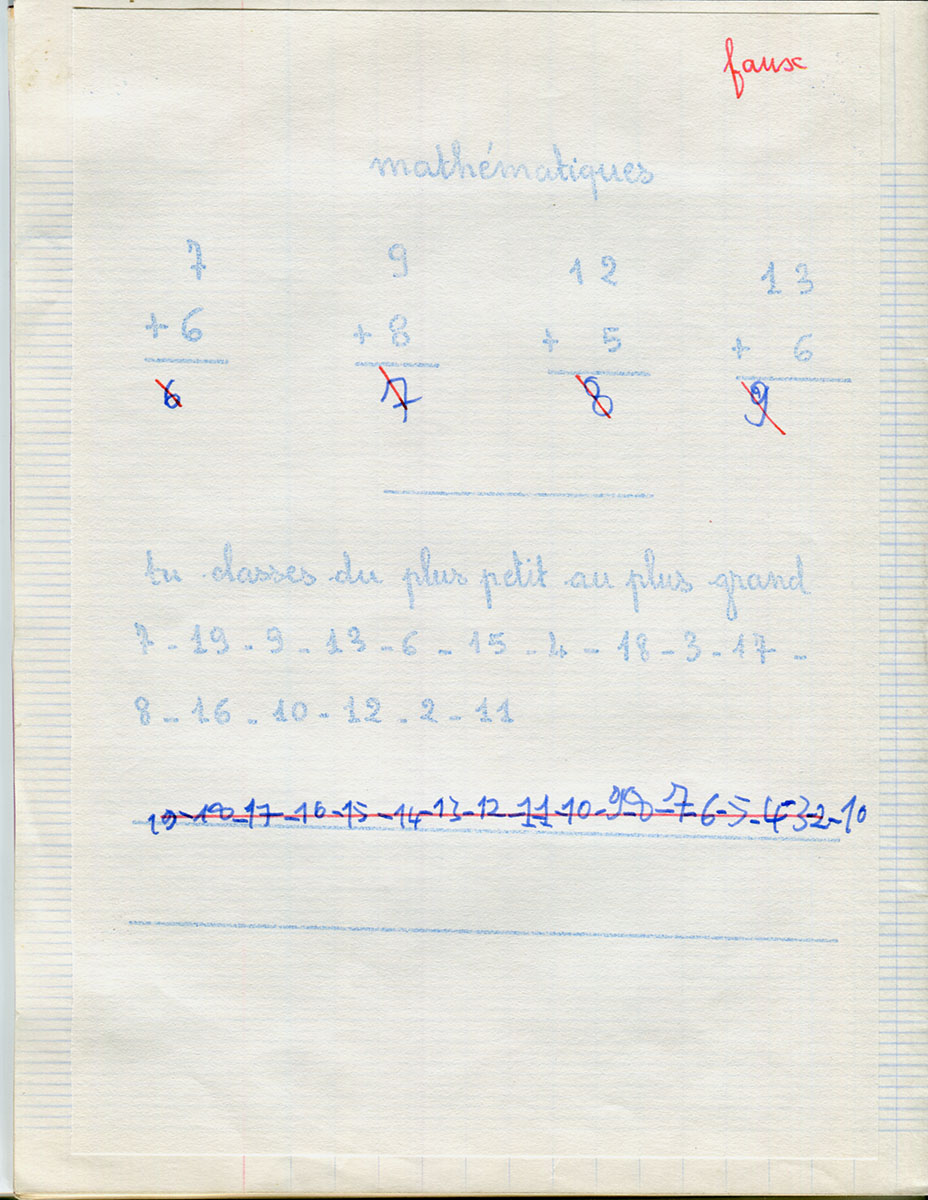 faux
mathématiques
7 9 12 13
+ 6 + 8 + 5 + 6
6 7 8 9
tu classes du plus petit au plus grand
7 - 19 - 9 - 13 - 6 - 15 - 4 - 18 - 3 - 17 -
8 - 16 - 10 - 12 - 2 - 11
19-18-17-16-15-14-13-12-11-10-9-8-7-6-5-4-3-2-10